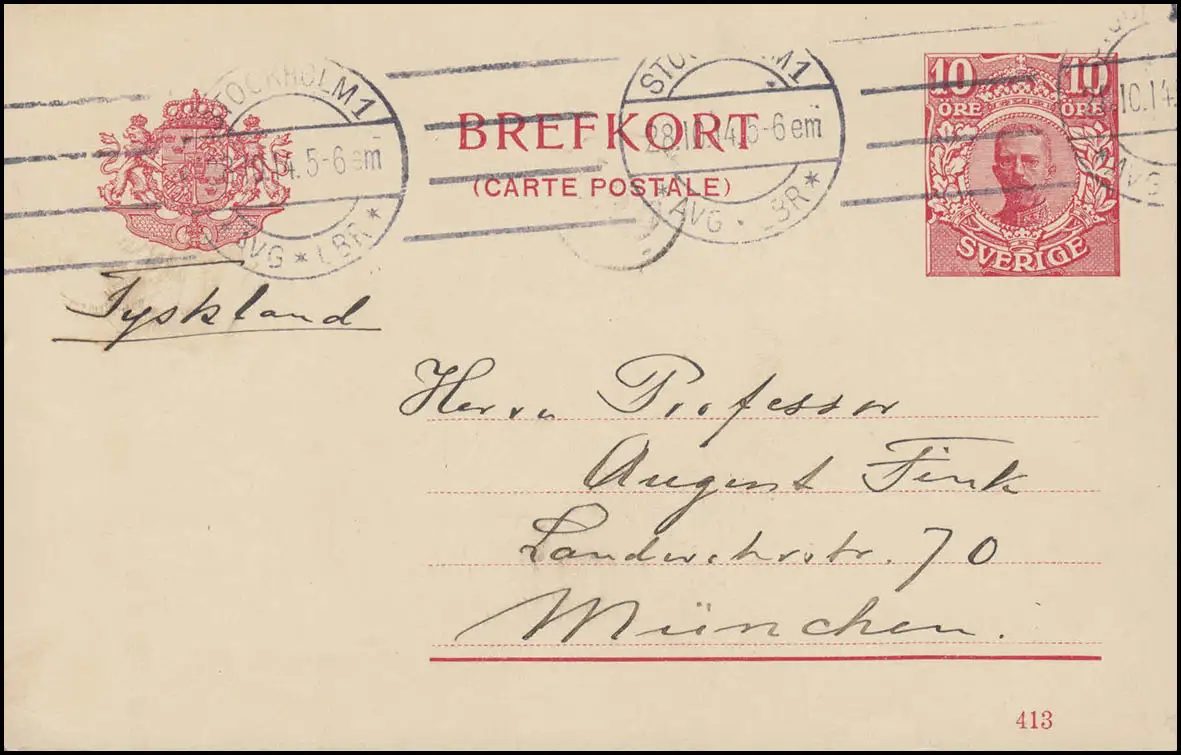 STOCKHOLM 1
28.10.14. 5-6 em
* AVG * LBR *
STOCKHOLM 1
28.10.14. 5-6 em
* AVG. LBR *
BREFKORT
(CARTE POSTALE)
10 10
ÖRE ÖRE
SVERIGE
10.14.
AVG
Tyskland
Herrn Professor
August Fink
Landwehrstr. 70
München.
413